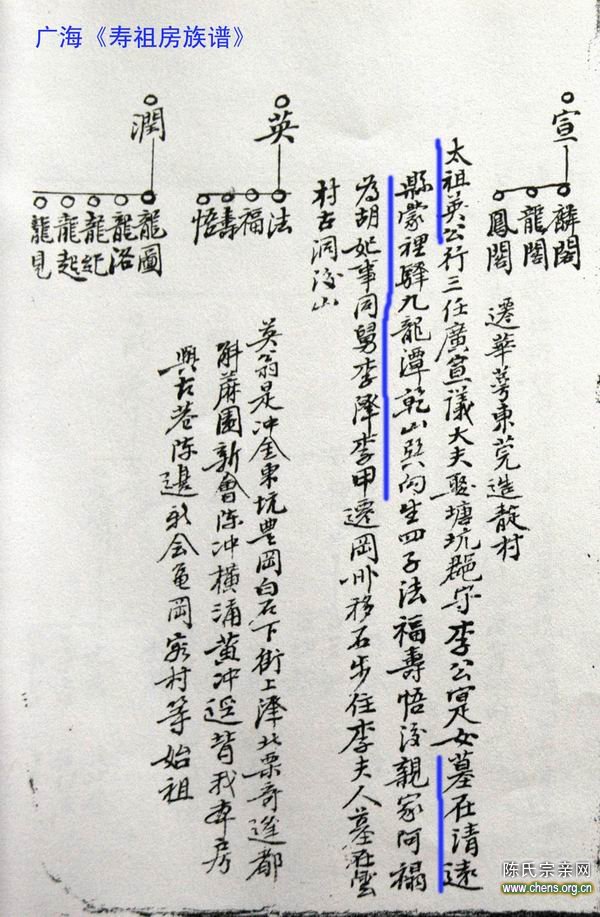 广海《寿祖房族谱》
宣
麟閣
龍閣
鳳閣
遷華萼東莞造靛村
太祖英公行三任廣宣議大夫娶塘坑郡守李公寔女墓在清遠
縣蒙裡驛九龍潭乾山巽向生四子法福壽悟後親家阿禢
為胡妃事同舅李澤李甲遷岡州移石步住李夫人墓在雲
村古洞後山
英
法
福
壽
悟
英翁是冲金東坑豊岡白石下街上澤北栗奇逢都
斛蔴園新會陳冲橫涌黃冲逕背我本房
與古巷陳邊新会龟岡家村等始祖
潤
龍圖
龍洛
龍紀
龍起
龍見
陈氏宗亲网
www.chens.org.cn